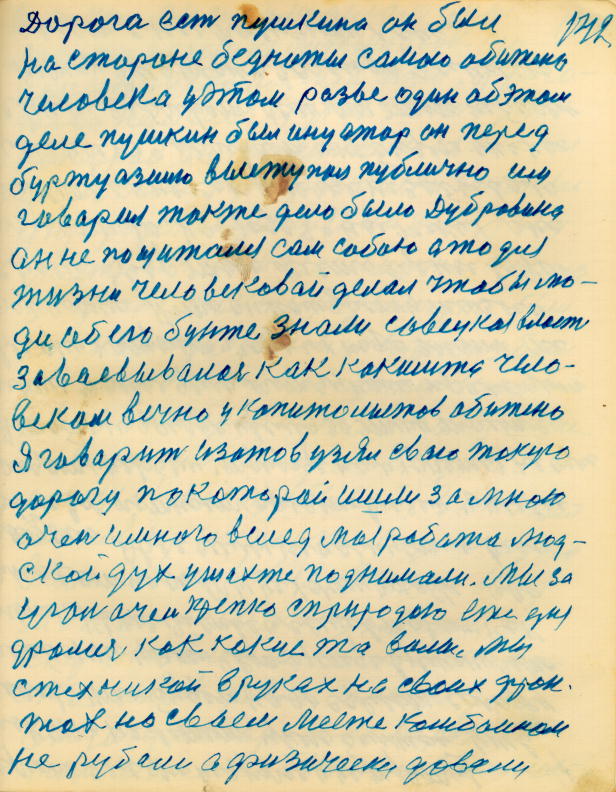 142
Дорога ест пушкина он был
на стороне бедноты самого обижено
человека у этом разве один об этом
деле пушкин был он перед
буржуазиию выступал публично им
говарил также дело было Дубровина
он не пощитался сам собою а то для
жизни человековай делал чтобы лю-
ди об его бунте знали совецкая власт
заваевывалая как какимта чело-
веком вечно у копитолистов обижено
Я говарит Изотов узял сваю такую
дорогу по каторай ишли за мною
очен и много вслед мы работа люд-
ской дух у шахте поднимали. Мы за
угол очен крепко сприродою еще
дралися как какие та волки. Мы
стехникой в руках на своих фрон.
тах на сваем месте комбаином
не рубали а физически довали